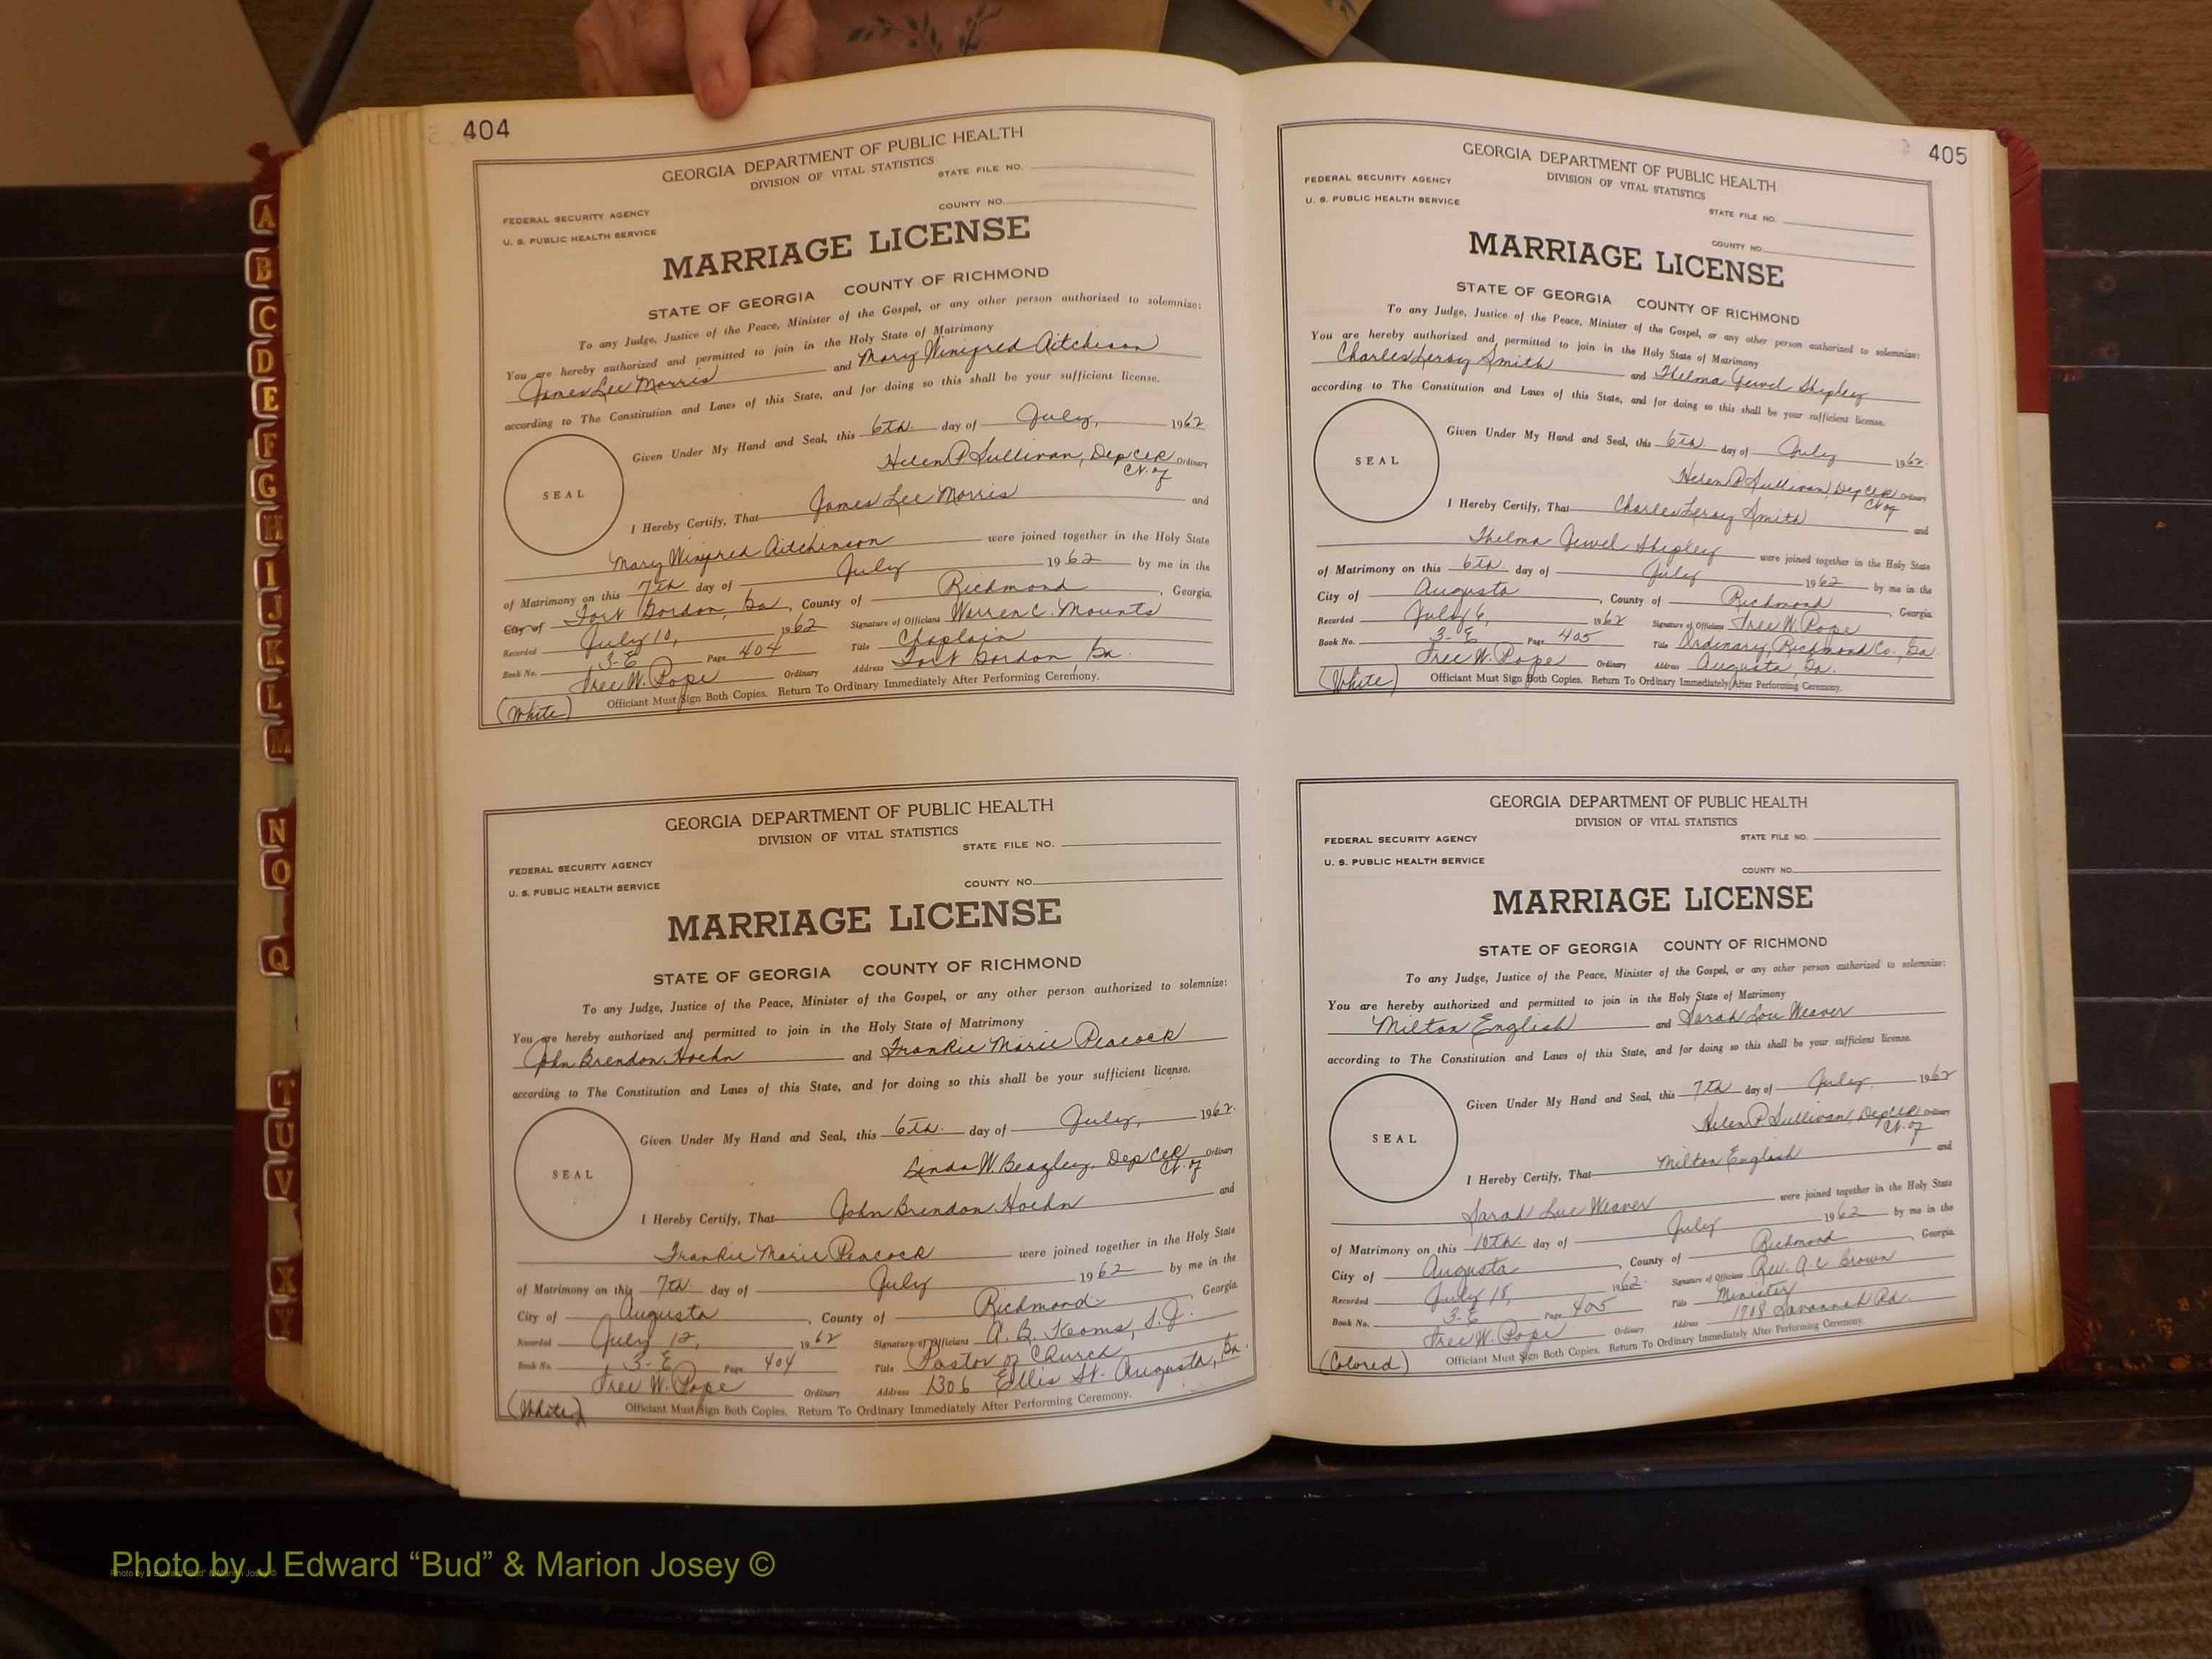 404
GEORGIA DEPARTMENT OF PUBLIC HEALTH
DIVISION OF VITAL STATISTICS
STATE FILE NO.
FEDERAL SECURITY AGENCY
COUNTY NO.
U. S. PUBLIC HEALTH SERVICE
MARRIAGE LICENSE
STATE OF GEORGIA COUNTY OF RICHMOND
To any Judge, Justice of the Peace, Minister of the Gospel, or any other person authorized to solemnize:
You are hereby authorized and permitted to join in the Holy State of Matrimony
James Lee Morris and Mary Winifred Aitchison
according to The Constitution and Laws of this State, and for doing so this shall be your sufficient license.
Given Under My Hand and Seal, this 6th day of July, 1962
Helen P Sullivan, Dep Clk Ordinary
Ct. of
SEAL
I Hereby Certify, That James Lee Morris and
Mary Winifred Aitchinson were joined together in the Holy State
of Matrimony on this 7th day of July 1962 by me in the
City of Fort Gordon, Ga, County of Richmond, Georgia.
Recorded July 10, 1962 Signature of Officiant Warren C. Mounts
Book No. 3-E Page 404 Title Chaplain
Free W. Pope Ordinary Address Fort Gordon, Ga.
(White) Officiant Must Sign Both Copies. Return To Ordinary Immediately After Performing Ceremony.
GEORGIA DEPARTMENT OF PUBLIC HEALTH
DIVISION OF VITAL STATISTICS
STATE FILE NO.
FEDERAL SECURITY AGENCY
COUNTY NO.
U. S. PUBLIC HEALTH SERVICE
MARRIAGE LICENSE
STATE OF GEORGIA COUNTY OF RICHMOND
To any Judge, Justice of the Peace, Minister of the Gospel, or any other person authorized to solemnize:
You are hereby authorized and permitted to join in the Holy State of Matrimony
John Brendon Hoehn and Frankie Marie Peacock
according to The Constitution and Laws of this State, and for doing so this shall be your sufficient license.
Given Under My Hand and Seal, this 6th day of July, 1962.
Linda W. Beazley, Dep Clk Ordinary
Ct. of
SEAL
I Hereby Certify, That John Brendon Hoehn and
Frankie Marie Peacock were joined together in the Holy State
of Matrimony on this 7th day of July 1962 by me in the
City of Augusta, County of Richmond, Georgia.
Recorded July 12, 1962 Signature of Officiant A. B. Kearns, S.J.
Book No. 3-E Page 404 Title Pastor of Church
Free W. Pope Ordinary Address 1306 Ellis St. Augusta, Ga.
(White) Officiant Must Sign Both Copies. Return To Ordinary Immediately After Performing Ceremony.
405
GEORGIA DEPARTMENT OF PUBLIC HEALTH
DIVISION OF VITAL STATISTICS
FEDERAL SECURITY AGENCY
STATE FILE NO.
U. S. PUBLIC HEALTH SERVICE
COUNTY NO.
MARRIAGE LICENSE
STATE OF GEORGIA COUNTY OF RICHMOND
To any Judge, Justice of the Peace, Minister of the Gospel, or any other person authorized to solemnize:
You are hereby authorized and permitted to join in the Holy State of Matrimony
Charles Leroy Smith and Thelma Jewel Shipley
according to The Constitution and Laws of this State, and for doing so this shall be your sufficient license.
Given Under My Hand and Seal, this 6th day of July 1962.
Helen P Sullivan, Dep Clk Ordinary
Ct of
SEAL
I Hereby Certify, That Charles Leroy Smith and
Thelma Jewel Shipley were joined together in the Holy State
of Matrimony on this 6th day of July 1962 by me in the
City of Augusta, County of Richmond, Georgia.
Recorded July 6, 1962 Signature of Officiant Free W. Pope
Book No. 3-E Page 405 Title Ordinary, Richmond Co., Ga.
Free W. Pope Ordinary Address Augusta, Ga.
(White) Officiant Must Sign Both Copies. Return To Ordinary Immediately After Performing Ceremony.
GEORGIA DEPARTMENT OF PUBLIC HEALTH
DIVISION OF VITAL STATISTICS
FEDERAL SECURITY AGENCY STATE FILE NO.
U. S. PUBLIC HEALTH SERVICE
COUNTY NO.
MARRIAGE LICENSE
STATE OF GEORGIA COUNTY OF RICHMOND
To any Judge, Justice of the Peace, Minister of the Gospel, or any other person authorized to solemnize:
You are hereby authorized and permitted to join in the Holy State of Matrimony
Milton English and Sarah Lou Weaver
according to The Constitution and Laws of this State, and for doing so this shall be your sufficient license.
Given Under My Hand and Seal, this 7th day of July, 1962
Helen P Sullivan, Dep Clk Ordinary
Ct. of
SEAL
I Hereby Certify, That Milton English and
Sarah Lue Weaver were joined together in the Holy State
of Matrimony on this 10th day of July 1962 by me in the
City of Augusta, County of Richmond, Georgia.
Recorded July 18, 1962. Signature of Officiant Rev. A C Brown
Book No. 3-E Page 405 Title Minister
Free W. Pope Ordinary Address 1908 Savannah Rd.
(Colored) Officiant Must Sign Both Copies. Return To Ordinary Immediately After Performing Ceremony.
A
B
C
D
E
F
G
H
I
J
K
L
M
N
O
Q
T
U
V
X
Y
Photo by J Edward “Bud” & Marion Josey ©
Photo by J Edward “Bud” & Marion Josey ©